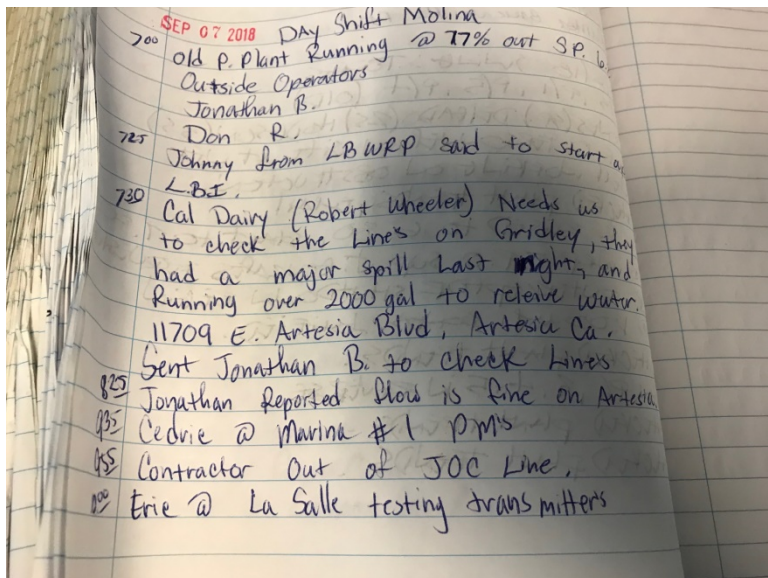 SEP 07 2018 DAY Shift Molina
700 Old P. Plant Running @ 77% out S.P.
Outside Operators
Jonathan B.
Don R.
725 Johnny from LBWRP said to start
L.B.I.
730 Cal Dairy (Robert Wheeler) Needs us
to check the Lines on Gridley, they
had a major spill Last night, and
Running over 2000 gal to releive water.
11709 E. Artesia Blvd, Artesia Ca.
Sent Jonathan B. to check Lines
825 Jonathan Reported flow is fine on Artesia
935 Cedric @ Marina #1 PM's
955 Contractor Out of JOC Line.
Eric @ La Salle testing transmitters